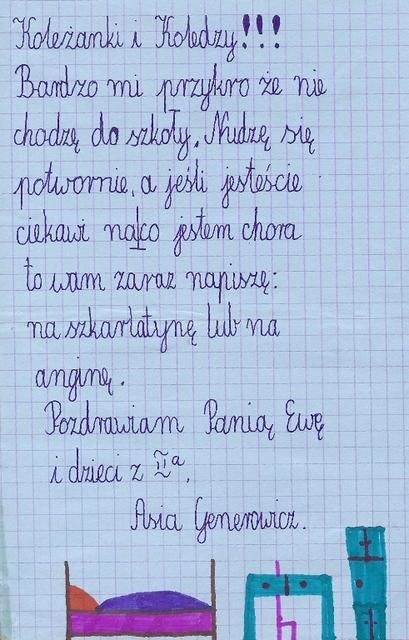 Koleżanki i Koledzy!!!
Bardzo mi przykro że nie
chodzę do szkoły. Nudzę się
potwornie, a jeśli jesteście
ciekawi na|co jestem chora
to wam zaraz napiszę:
na szkarlatynę lub na
anginę.
Pozdrawiam Panią Ewę
i dzieci z IIa.
Asia Generowicz.